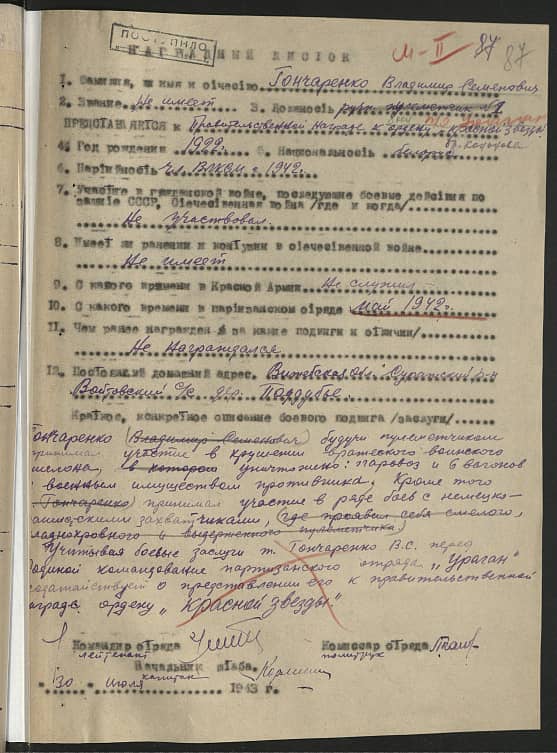 ПОСТУПИЛО
НАГРАДНЫЙ ЛИСТОК
М-II 87 87
1. Фамилия, имя и отчество Гончаренко Владимир Семенович
2. Звание Не имеет 3. Должность
ПРЕДСТАВЛЯЕТСЯ к Правительственной награде к ордену "Красной звезды"
4. Год рождения 1922 5. Национальность
6. Партийность чл. ВЛКСМ с 1942 г.
7. Участие в гражданской войне, последующие боевые действия по
защите СССР, Отечественная война /где и когда/
Не участвовал.
8. Имеет ли ранения и контузии в отечественной войне
Не имеет
9. С какого времени в Красной Армии Не служил
10. С какого времени в партизанском отряде май 1942 г.
11. Чем ранее награжден за какие подвиги и отличия/
Не награждался
12. Постоянный домашний адрес. Витебская обл. Суражский р-н
Войтовский с/с дер. Поддубье.
Краткое, конкретное описание боевого подвига /заслуги/
Гончаренко (Владимир Семенович) будучи пулеметчиком
принимал участие в крушении вражеского воинского
эшелона, в котором уничтожено: паровоз и 6 вагонов
с военным имуществом противника. Кроме того
(Гончаренко) принимал участие в ряде боев с немецко-
фашисткими захватчиками, (где проявил себя смелого,
хладнокровного и выдержанного пулеметчика)
Учитывая боевые заслуги т. Гончаренко В.С. перед
родиной командование партизанского отряда "Ураган"
ходатайствует о представлении его к правительственной
награде ордену "Красной звезды"
Командир отряда Комиссар отряда
лейтенант политрук
Начальник штаба.
капитан
"30" июля 1943 г.